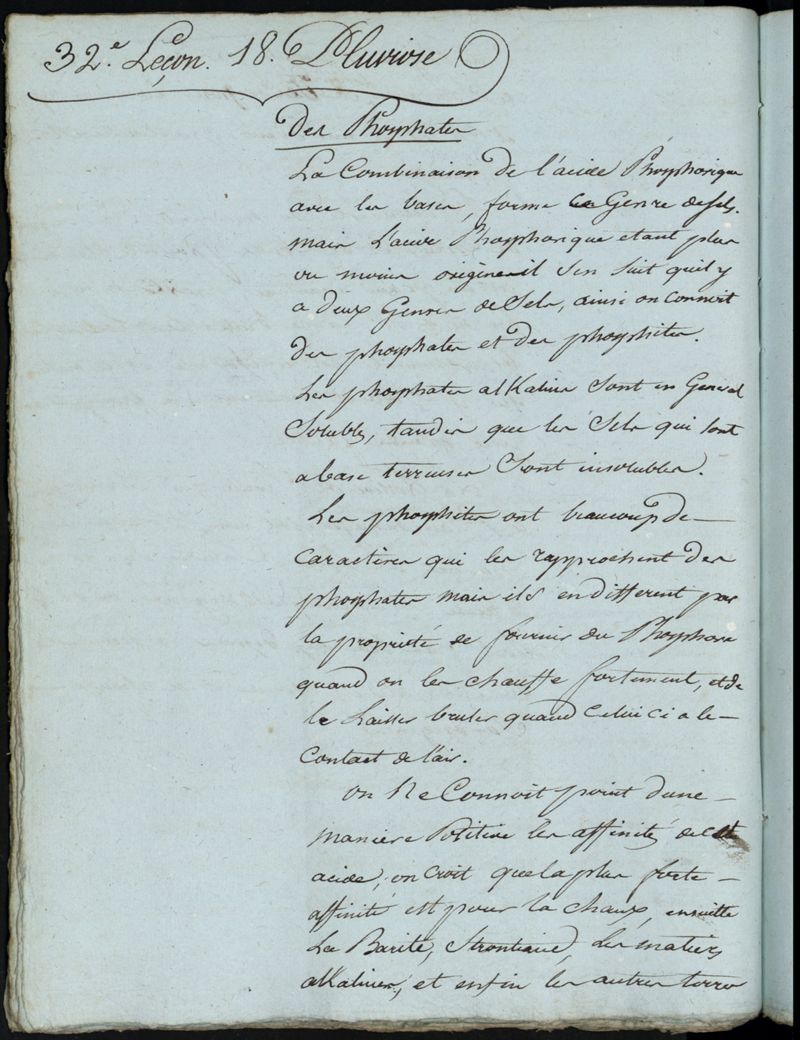 32.e Leçon. 18. Pluviose
Des Phosphates
La Combinaison de l'acide Phosphorique
avec les bases, forme ce Genre de Sels.
mais L'acide Phosphorique etant plus
ou moins origéné il s'en suit qu'il y
a deux Genres de Sels, ainsi on connoit
des phosphates et des phosphites.
Les phosphates alkalins Sont en General
Solubles, tandis que les Sels qui sont
a base terreuses Sont insolubles.
Les phosphites ont beaucoup de
caractères qui les rapprochent des
phosphates mais ils en different par
la propriété de fournir du Phosphore
quand on les chauffe fortement, et de
le Laisser bruler quand celui ci a le
contact de l'air.
on Ne Connoit point d'une
maniere Positive les affinités de cet
acide, on croit que la plus forte
affinité est pour la chaux, ensuitte
La Barite, Strontiane, les matieres
alkalines, et enfin les autres terres